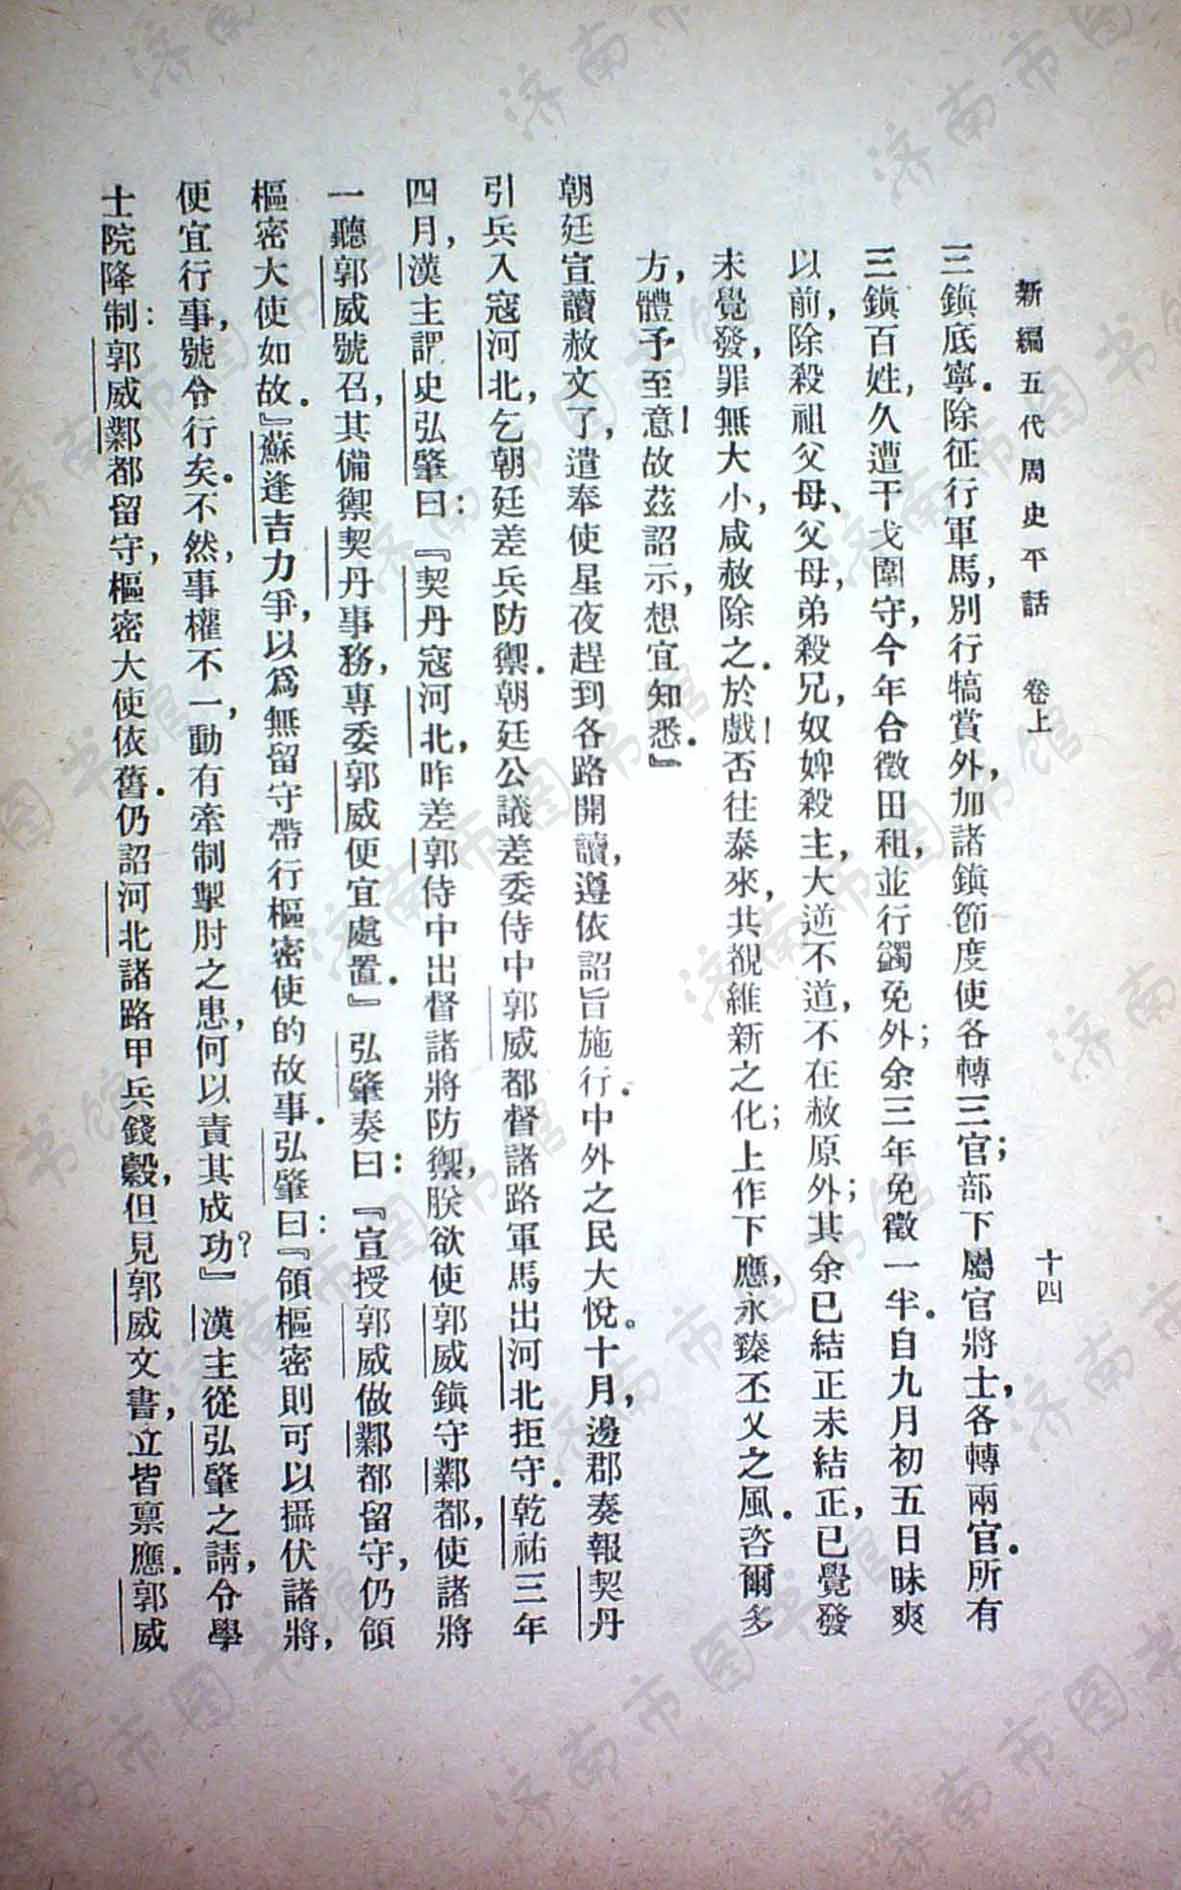 新編五代周史平話　卷上　十四
三鎮底寧．除征行軍馬，別行犒賞外，加諸鎮節度使各轉三官；部下屬官將士，各轉兩官．所有
三鎮百姓，久遭干戈圍守，今年合徵田租，並行蠲免外；余三年免徵一半．自九月初五日昧爽
以前，除殺祖父母、父母，弟殺兄，奴婢殺主，大逆不道，不在赦原外；其余已結正未結正，已覺發
未覺發，罪無大小，咸赦除之．於戲！否往泰來，共覩維新之化；上作下應，永臻丕乂之風．咨爾多
方，體予至意！故茲詔示，想宜知悉．』
朝廷宣讀赦文了，遣奉使星夜趕到各路開讀，遵依詔旨施行．中外之民大悅。十月，邊郡奏報契丹
引兵入寇河北，乞朝廷差兵防禦．朝廷公議差委侍中郭威都督諸路軍馬出河北拒守．乾祐三年
四月，漢主謂史弘肇曰：『契丹寇河北，昨差郭侍中出督諸將防禦，朕欲使郭威鎮守鄴都，使諸將
一聽郭威號召，其備禦契丹事務，專委郭威便宜處置．』弘肇奏曰：『宣授郭威做鄴都留守，仍領
樞密大使如故．』蘇逢吉力爭，以為無留守帶行樞密使的故事．弘肇曰：『領樞密則可以攝伏諸將，
便宜行事，號令行矣．不然，事權不一，動有牽制掣肘之患，何以責其成功？』漢主從弘肇之請，令學
士院降制：郭威鄴都留守，樞密大使依舊．仍詔河北諸路甲兵錢穀，但見郭威文書，立皆稟應．郭威
濟南市图书馆